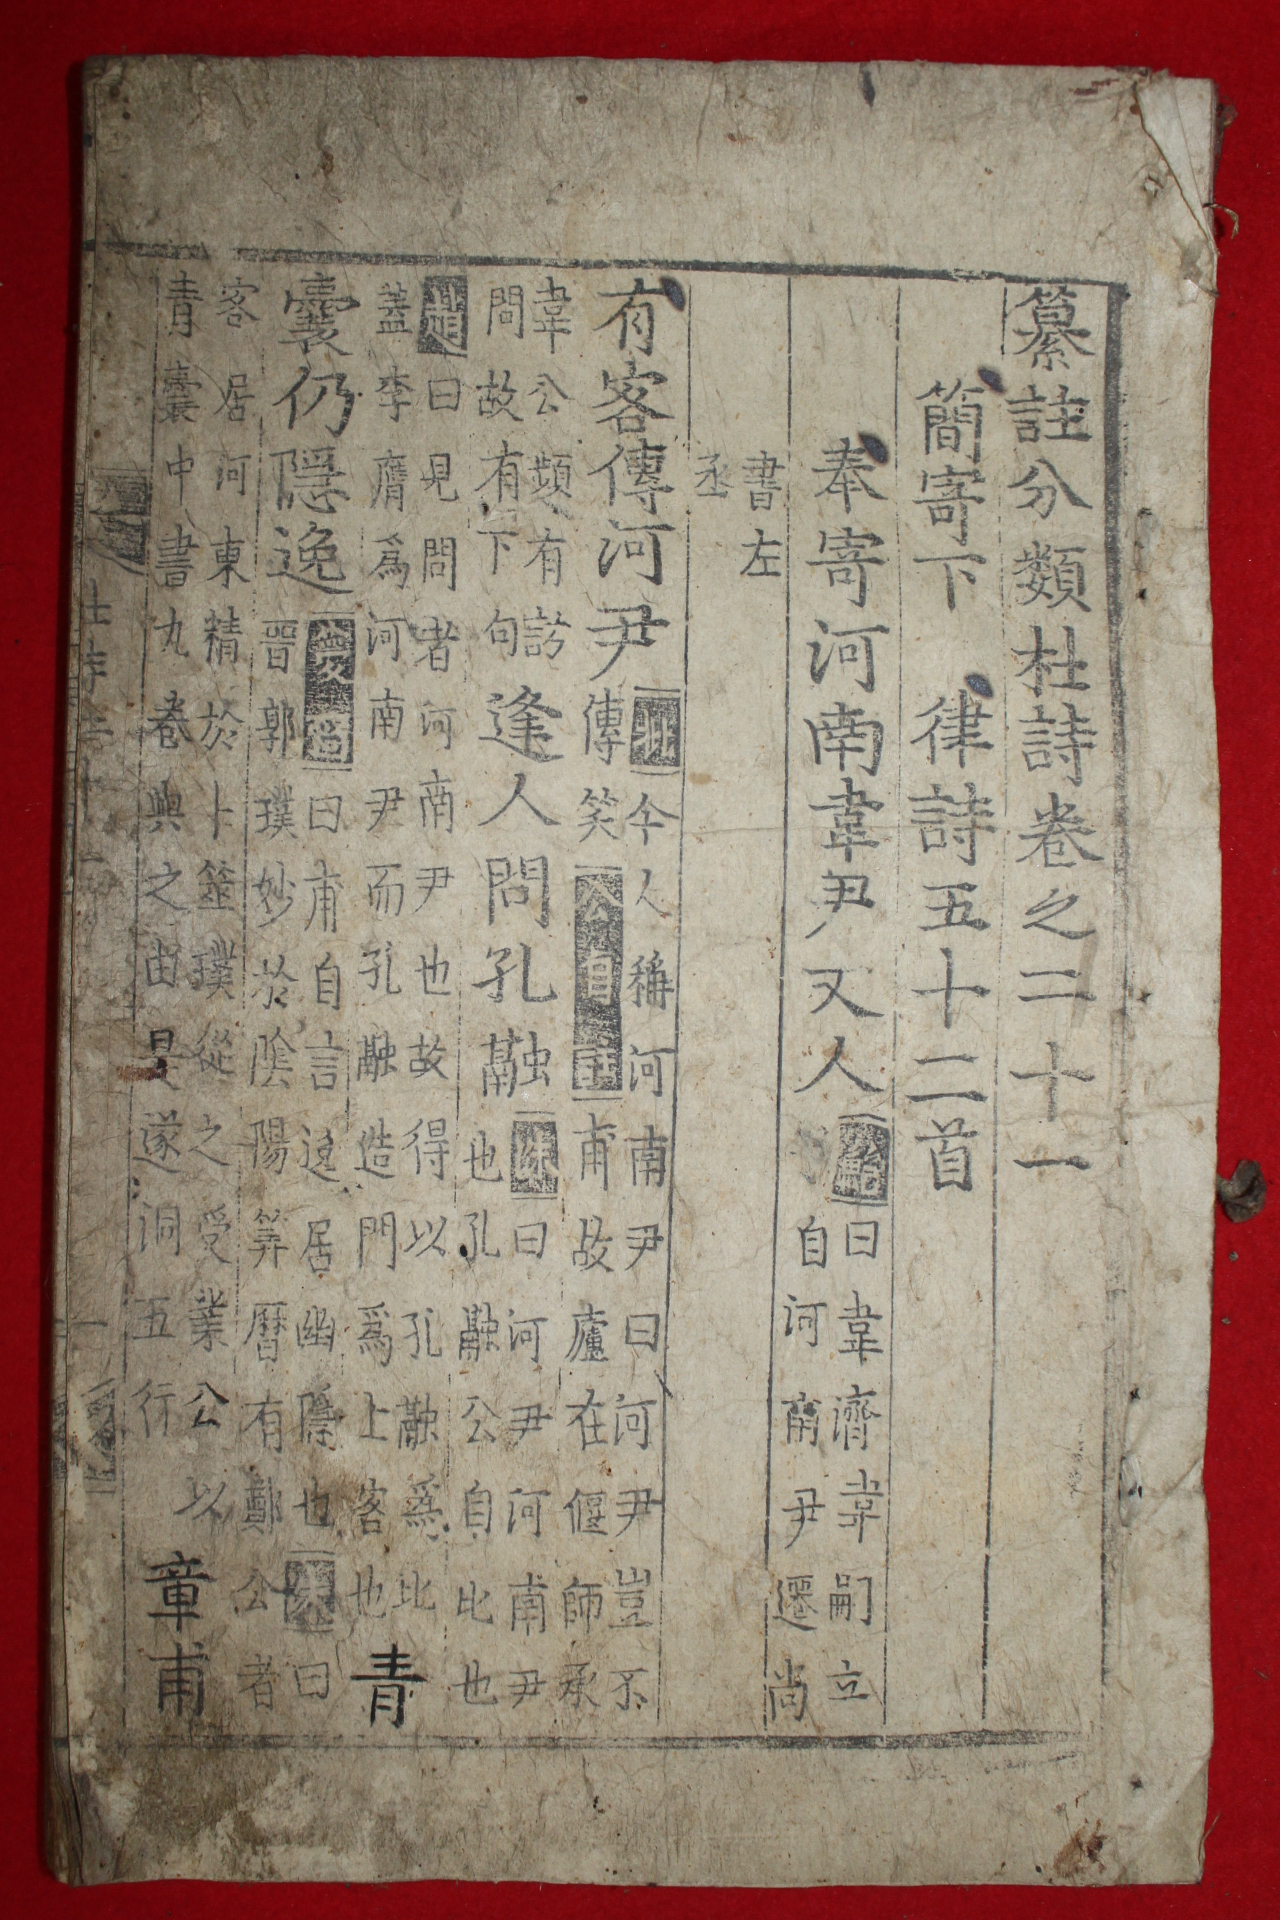 纂註分類杜詩卷之二十一
簡寄下 律詩五十二首
奉寄河南韋尹丈人
曰韋濟韋嗣立
自河南尹遷尚
書左
丞
有客傳河尹
今人稱河南尹曰河尹豈不
傳笑公自註甫故廬在偃師承
韋公頻有訪
問故有下句
逢人問孔融
曰河尹河南尹
也孔融公自比也
趙曰見問者河南尹也故得以孔融爲比
蓋李膺爲河南尹而孔融造門爲上客也
青
囊仍隱逸
夢弼曰甫自言逃居幽隱也 曰
晉郭璞妙於陰陽筭曆有鄭公者
客居河東精於卜筮璞從之受業公以
青囊中書九卷與之由是遂洞五行
章甫